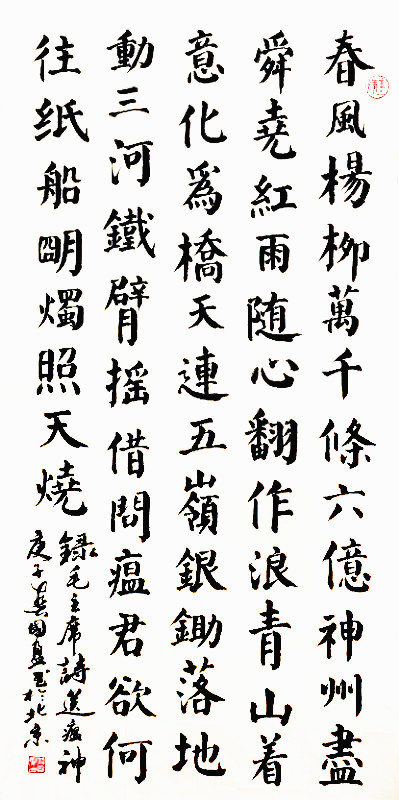 春風楊柳萬千條六億神州盡
舜堯紅雨随心翻作浪青山着
意化爲橋天連五嶺銀鋤落地
動三河鐵臂摇借問瘟君欲何
往纸船明燭照天燒
錄毛主席詩送瘟神
庚子國书於北京